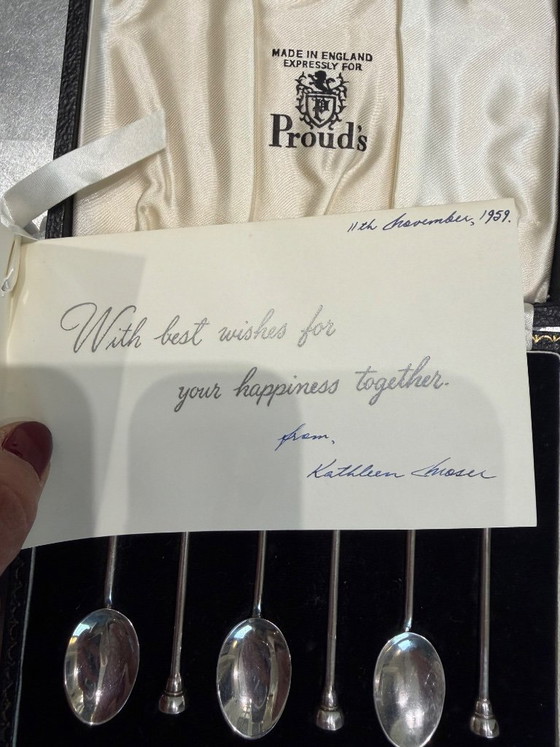 MADE IN ENGLAND
EXPRESSLY FOR
P
Proud's
11th November, 1959.
With best wishes for
your happiness together.
from,
Kathleen Moser